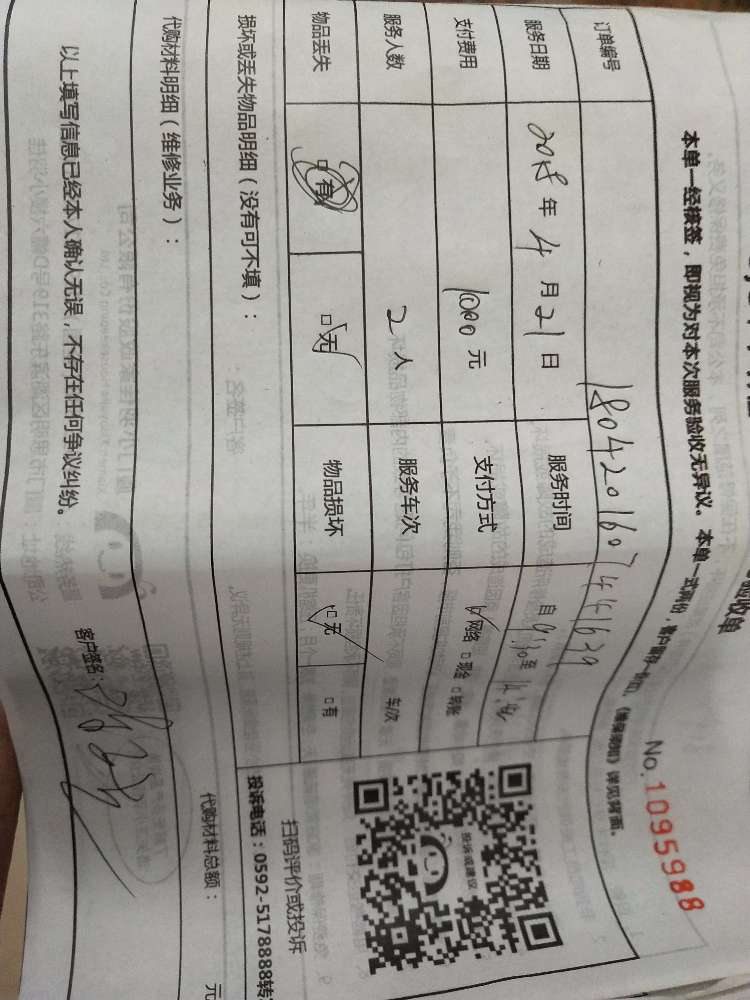 验收单
No.1095988
本单一经核签，即视为对本次服务验收无异议。本单一式两份，客户留存一份。《维保须知》详见背面。
订单编号 1804201607441629
服务日期 2018年4月21日 服务时间 自9:30至
支付费用 1000元 支付方式 ☑网络 □现金 □转账
服务人数 2人 服务车次 车/次
物品丢失 □有 ☑无 物品损坏 ☑无 □有
损坏或丢失物品明细（没有可不填）：
投诉或建议
扫码评价或投诉
投诉电话：0592-5178888转
代购材料明细（维修业务）：
代购材料总额： 元
以上填写信息已经本人确认无误，不存在任何争议纠纷。
客户签名：